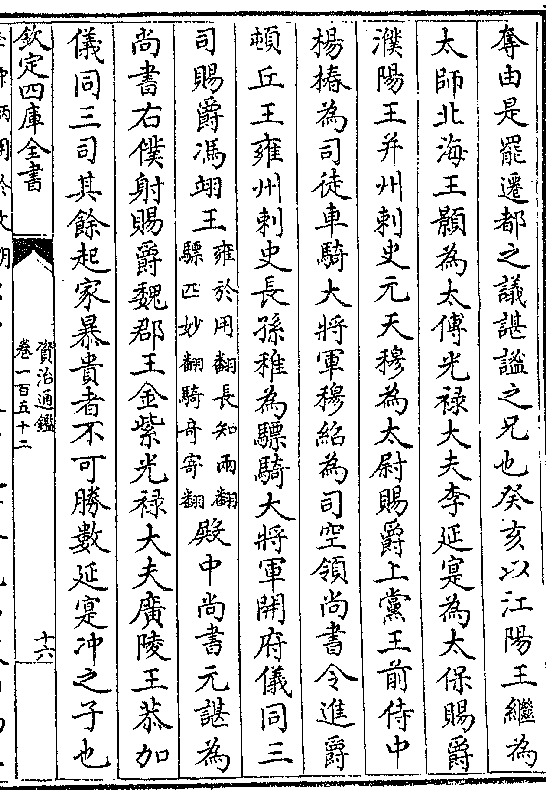 奪由是罷遷都之議諶謐之兄也癸亥以江陽王繼為
太師北海王顥為太傅光祿大夫李延寔為太保賜爵
濮陽王并州刺史元天穆為太尉賜爵上黨王前侍中
楊椿為司徒車騎大將軍穆紹為司空領尚書令進爵
頓丘王雍州刺史長孫稚為驃騎大將軍開府儀同三
司賜爵馮翊王雍於用翻長知兩翻驃匹妙翻騎奇寄翻殿中尚書元諶為
尚書右僕射賜爵魏郡王金紫光祿大夫廣陵王恭加
儀同三司其餘起家暴貴者不可勝數延寔冲之子也
欽定四庫全書
資治通鑑
卷一百五十二
十六